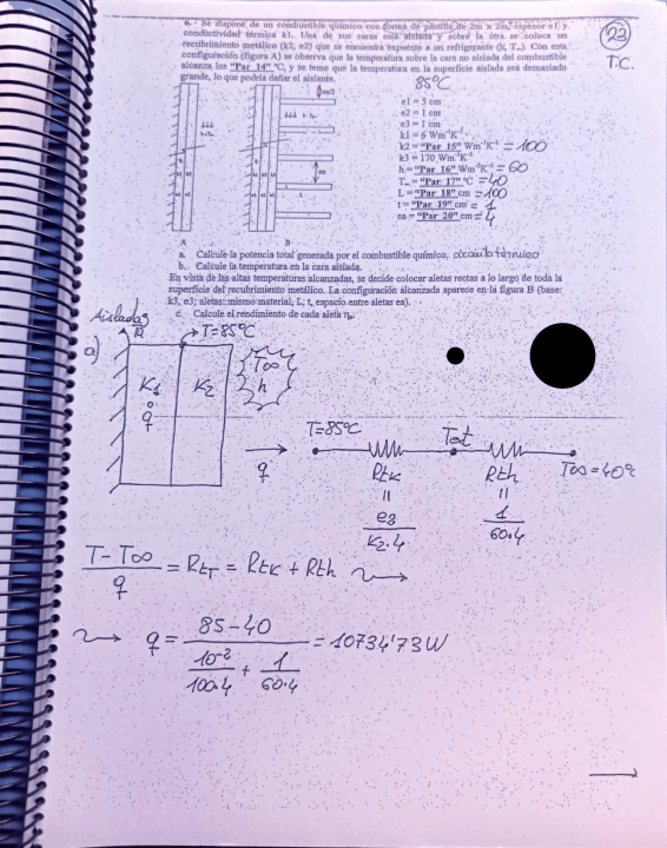 6. - Se dispone de un combustible químico con forma de pastilla de 2m x 2m, espesor e1 y
conductividad térmica k1. Una de sus caras está aislada y sobre la otra se coloca un
recubrimiento metálico (k2, e2) que se encuentra expuesto a un refrigerante (h, T∞). Con esta
configuración (figura A) se observa que la temperatura sobre la cara no aislada del combustible
alcanza los "Par 14" °C, y se teme que la temperatura en la superficie aislada sea demasiado
grande, lo que podría dañar el aislante.
23
T.C.
85°C
e1 = 5 cm
e2 = 1 cm
e3 = 1 cm
k1 = 6 Wm⁻¹K⁻¹
k2 = "Par 15" Wm⁻¹K⁻¹ = 100
k3 = 170 Wm⁻¹K⁻¹
h = "Par 16" Wm⁻²K⁻¹ = 60
T∞ = "Par 17" °C = 40
L = "Par 18" cm = 100
t = "Par 19" cm = 1
ea = "Par 20" cm = 4
A B
a. Calcule la potencia total generada por el combustible químico, circuito térmico
b. Calcule la temperatura en la cara aislada.
En vista de las altas temperaturas alcanzadas, se decide colocar aletas rectas a lo largo de toda la
superficie del recubrimiento metálico. La configuración alcanzada aparece en la figura B (base:
k3, e3; aletas: mismo material; L; t, espacio entre aletas ea).
c. Calcule el rendimiento de cada aleta η
Aislada
a)
T=85°C
K1
q
K2
T∞
h
q
T=85°C
T∞=40°C
Rtk
Rth
=
=
e3/K2·4
1/60·4
T-T∞/q = RtT = Rtk + Rth
q = 85-40/(10⁻²/100·4 + 1/60·4) = 10734'73W